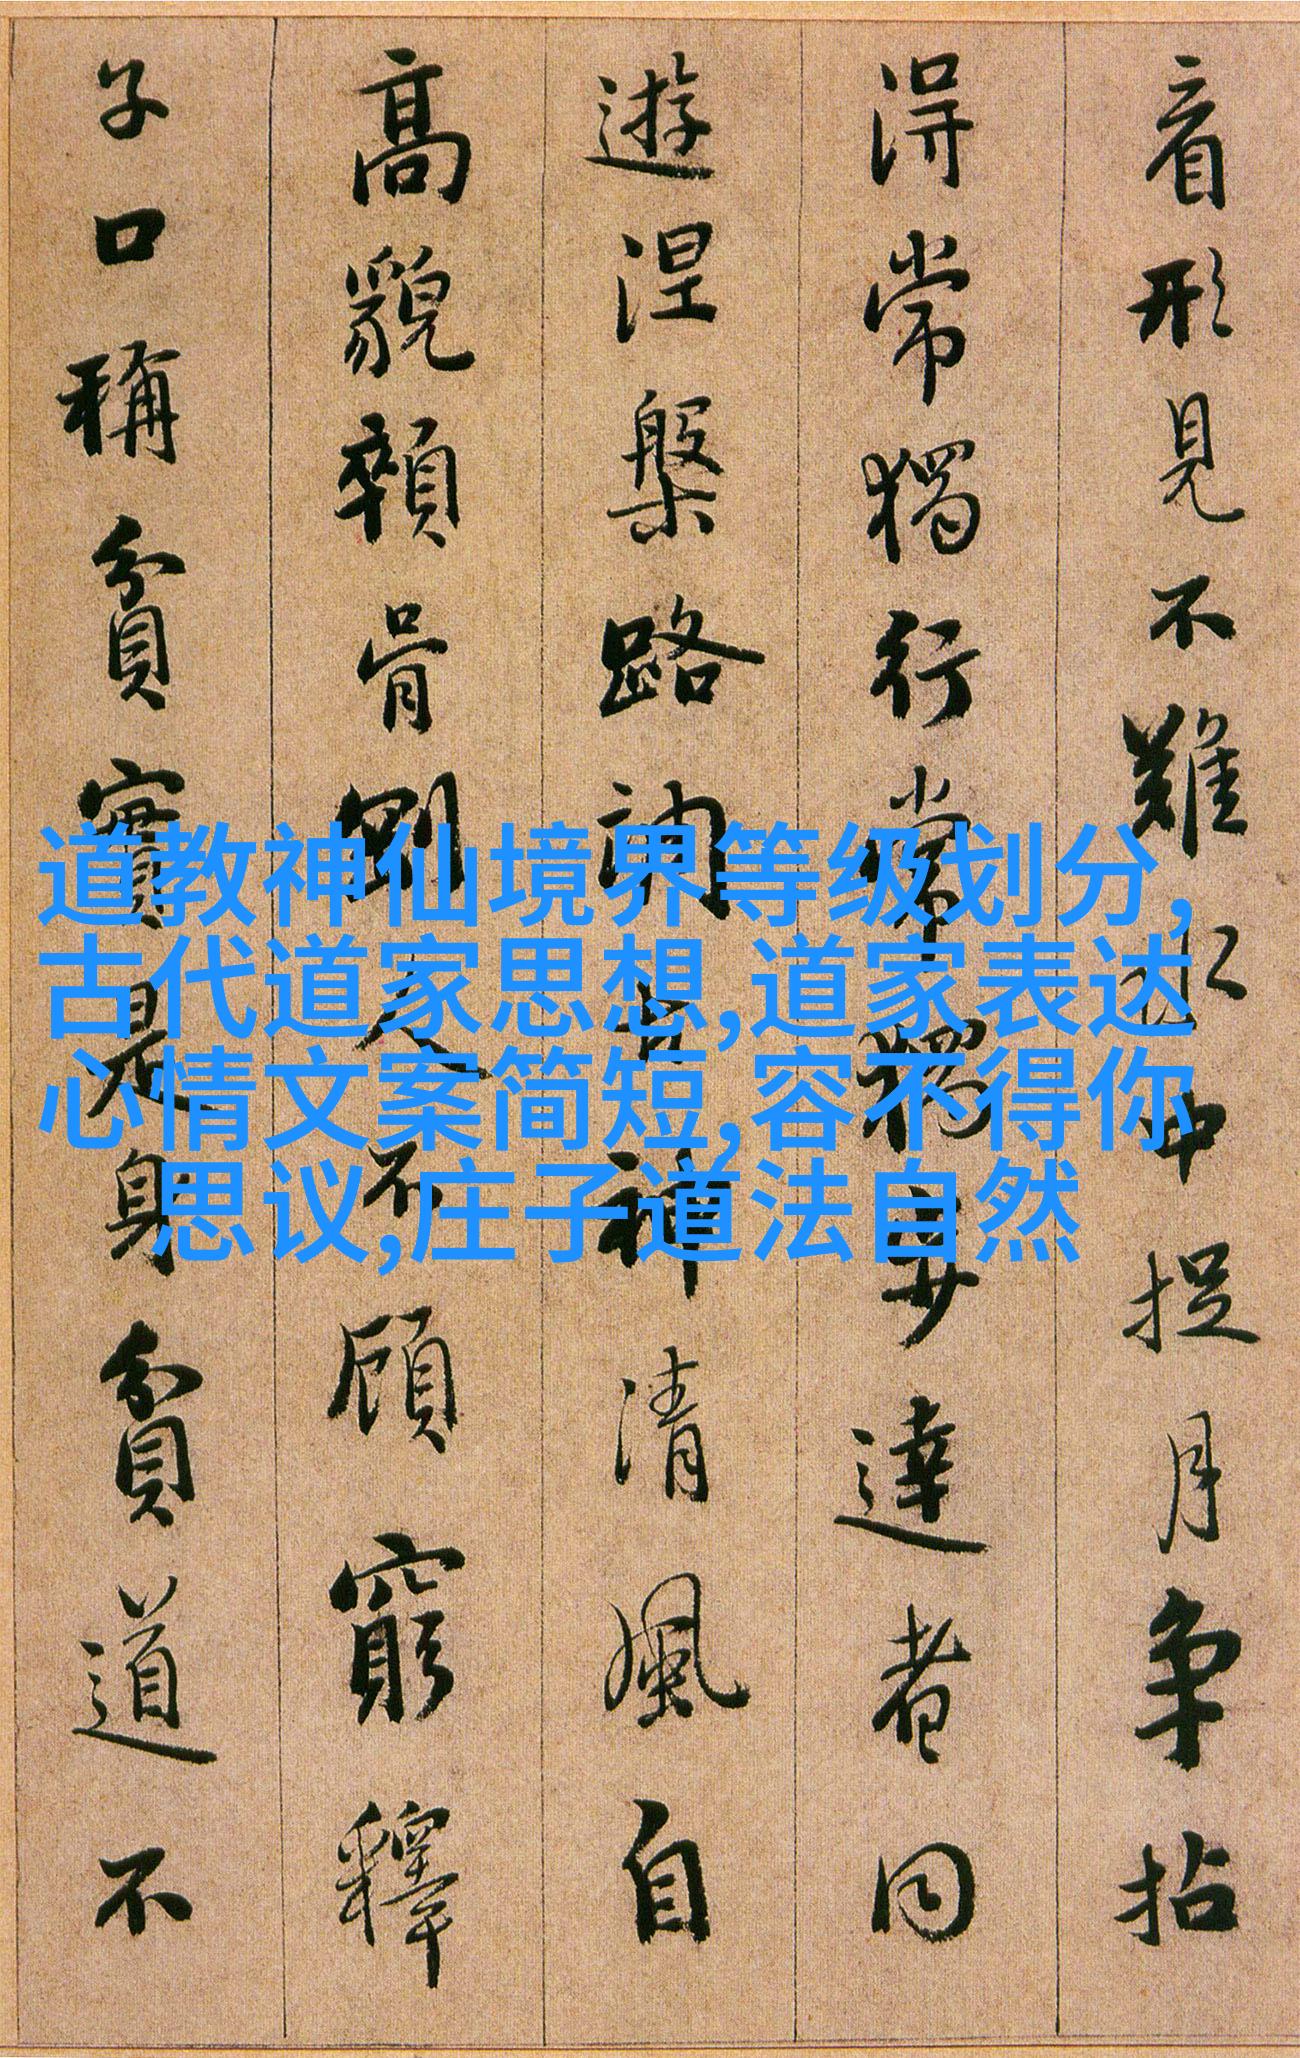 看形見不難水中捉月爭拈
淂常獨行常獨步達者同
遊涅槃路調古神清風自
高貌顇骨剛人不顧窮釋
子口稱貧實是身貧道不
道教神仙境界等级划分,
古代道家思想,道家表达
心情文案简短,容不得你
思议,庄子道法自然